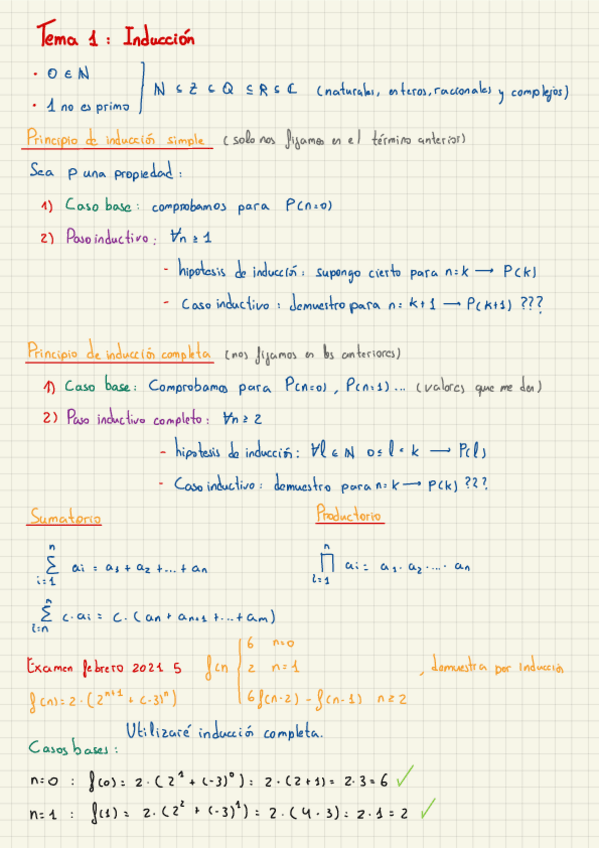 Tema 1: Inducción
· 0 ∈ N
· 1 no es primo
N ⊆ Z ⊆ Q ⊆ R ⊆ C (naturales, enteros, racionales y complejos)
Principio de inducción simple (solo nos fijamos en el término anterior)
Sea P una propiedad:
1) Caso base: comprobamos para P(n=0)
2) Paso inductivo: ∀n ≥ 1
- hipotesis de inducción: supongo cierto para n=k → P(k)
- Caso inductivo: demuestro para n= k+1 → P(k+1) ???
Principio de inducción completa (nos fijamos en los anteriores)
1) Caso base: Comprobamos para P(n=0), P(n=1)... (valores que me den)
2) Paso inductivo completo: ∀n ≥ 2
- hipotesis de inducción: ∀l ∈ N 0≤l<k → P(l)
- Caso inductivo: demuestro para n=k → P(k) ???
Sumatorio Productorio
n ∑ i=1 ai = a1 + a2 + ... + an
n ∏ i=1 ai = a1 · a2 · ... · an
∑ i=n c·ai = c·(an + an+1 + ... + am)
Examen febrero 2021 5 f(n { 6 n=0
2 n=1
6f(n-2) - f(n-1) n≥2
, demuestra por inducción
f(n) = 2·(2^n+1 + (-3)^n)
Utilizaré inducción completa.
Casos bases:
n=0 : f(0) = 2·(2^1 + (-3)^0) = 2·(2+1) = 2·3 = 6 ✓
n=1 : f(1) = 2·(2^2 + (-3)^1) = 2·(4-3) = 2·1 = 2 ✓